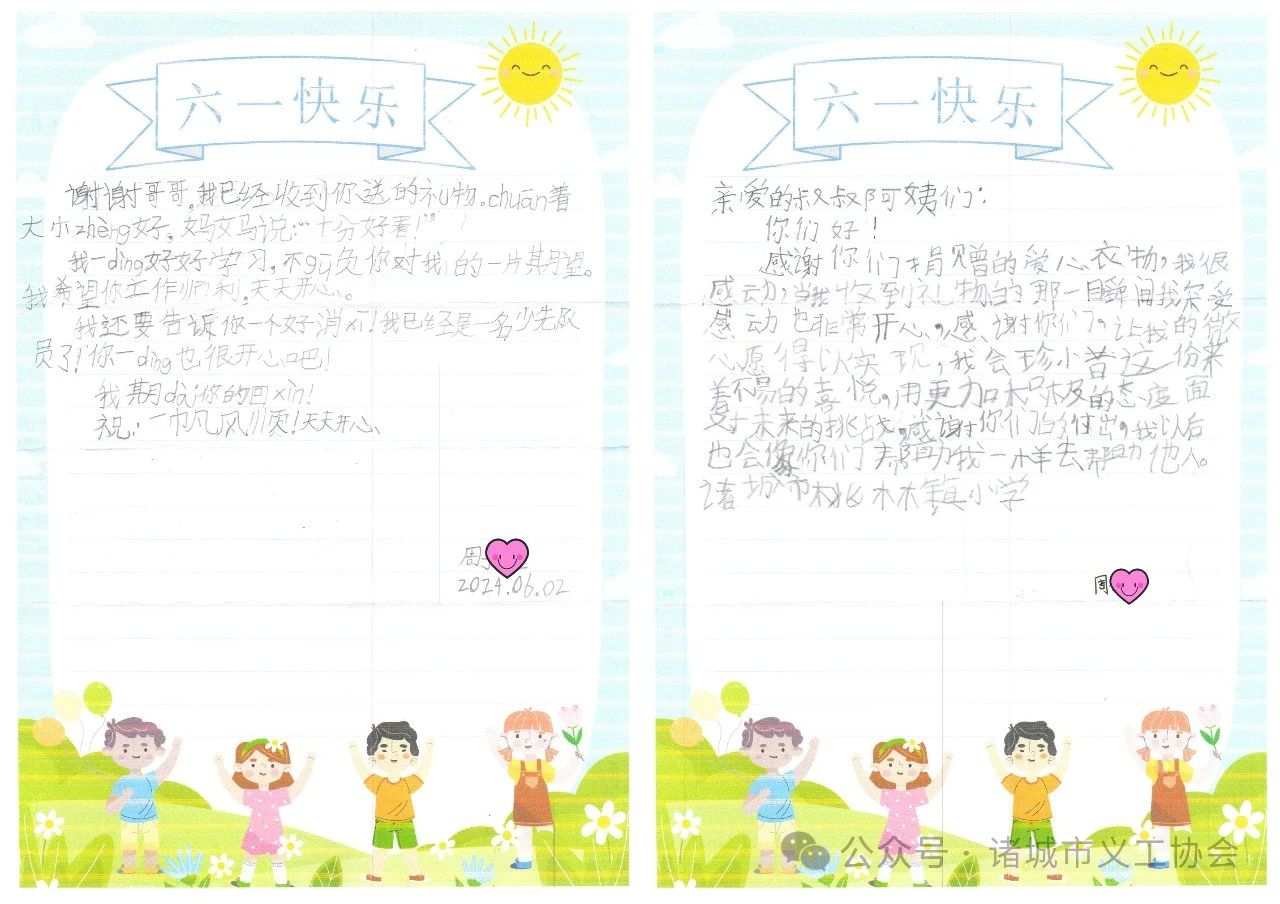 六一快乐
谢谢哥哥。我已经收到你送的礼物。chuān着
大小zhèng好。妈妈说:“十分好看!”
我一dìng好好学习,不gū负你对我们的一片期望。
我希望你工作顺利,天天开心。
我还要告诉你一个好消xī!我已经是一名少先队
员了!你一dìng也很开心吧!
我期dài你的回xìn!
祝:一帆风顺!天天开心、
周
2024.06.02
六一快乐
亲爱的叔叔阿姨们:
你们好!
感谢你们捐赠的爱心衣物,我很
感动,当我收到礼物的那一瞬间我深受
感动也非常开心,感谢你们,让我的微
心愿得以实现,我会珍惜这份来
着不易的喜悦,用更加积极的态度面
对未来的挑战,感谢你们的付出,我以后
也会像你们帮助我一样去帮助他人。
诸城市桃林镇小学
周
公众号·诸城市义工协会